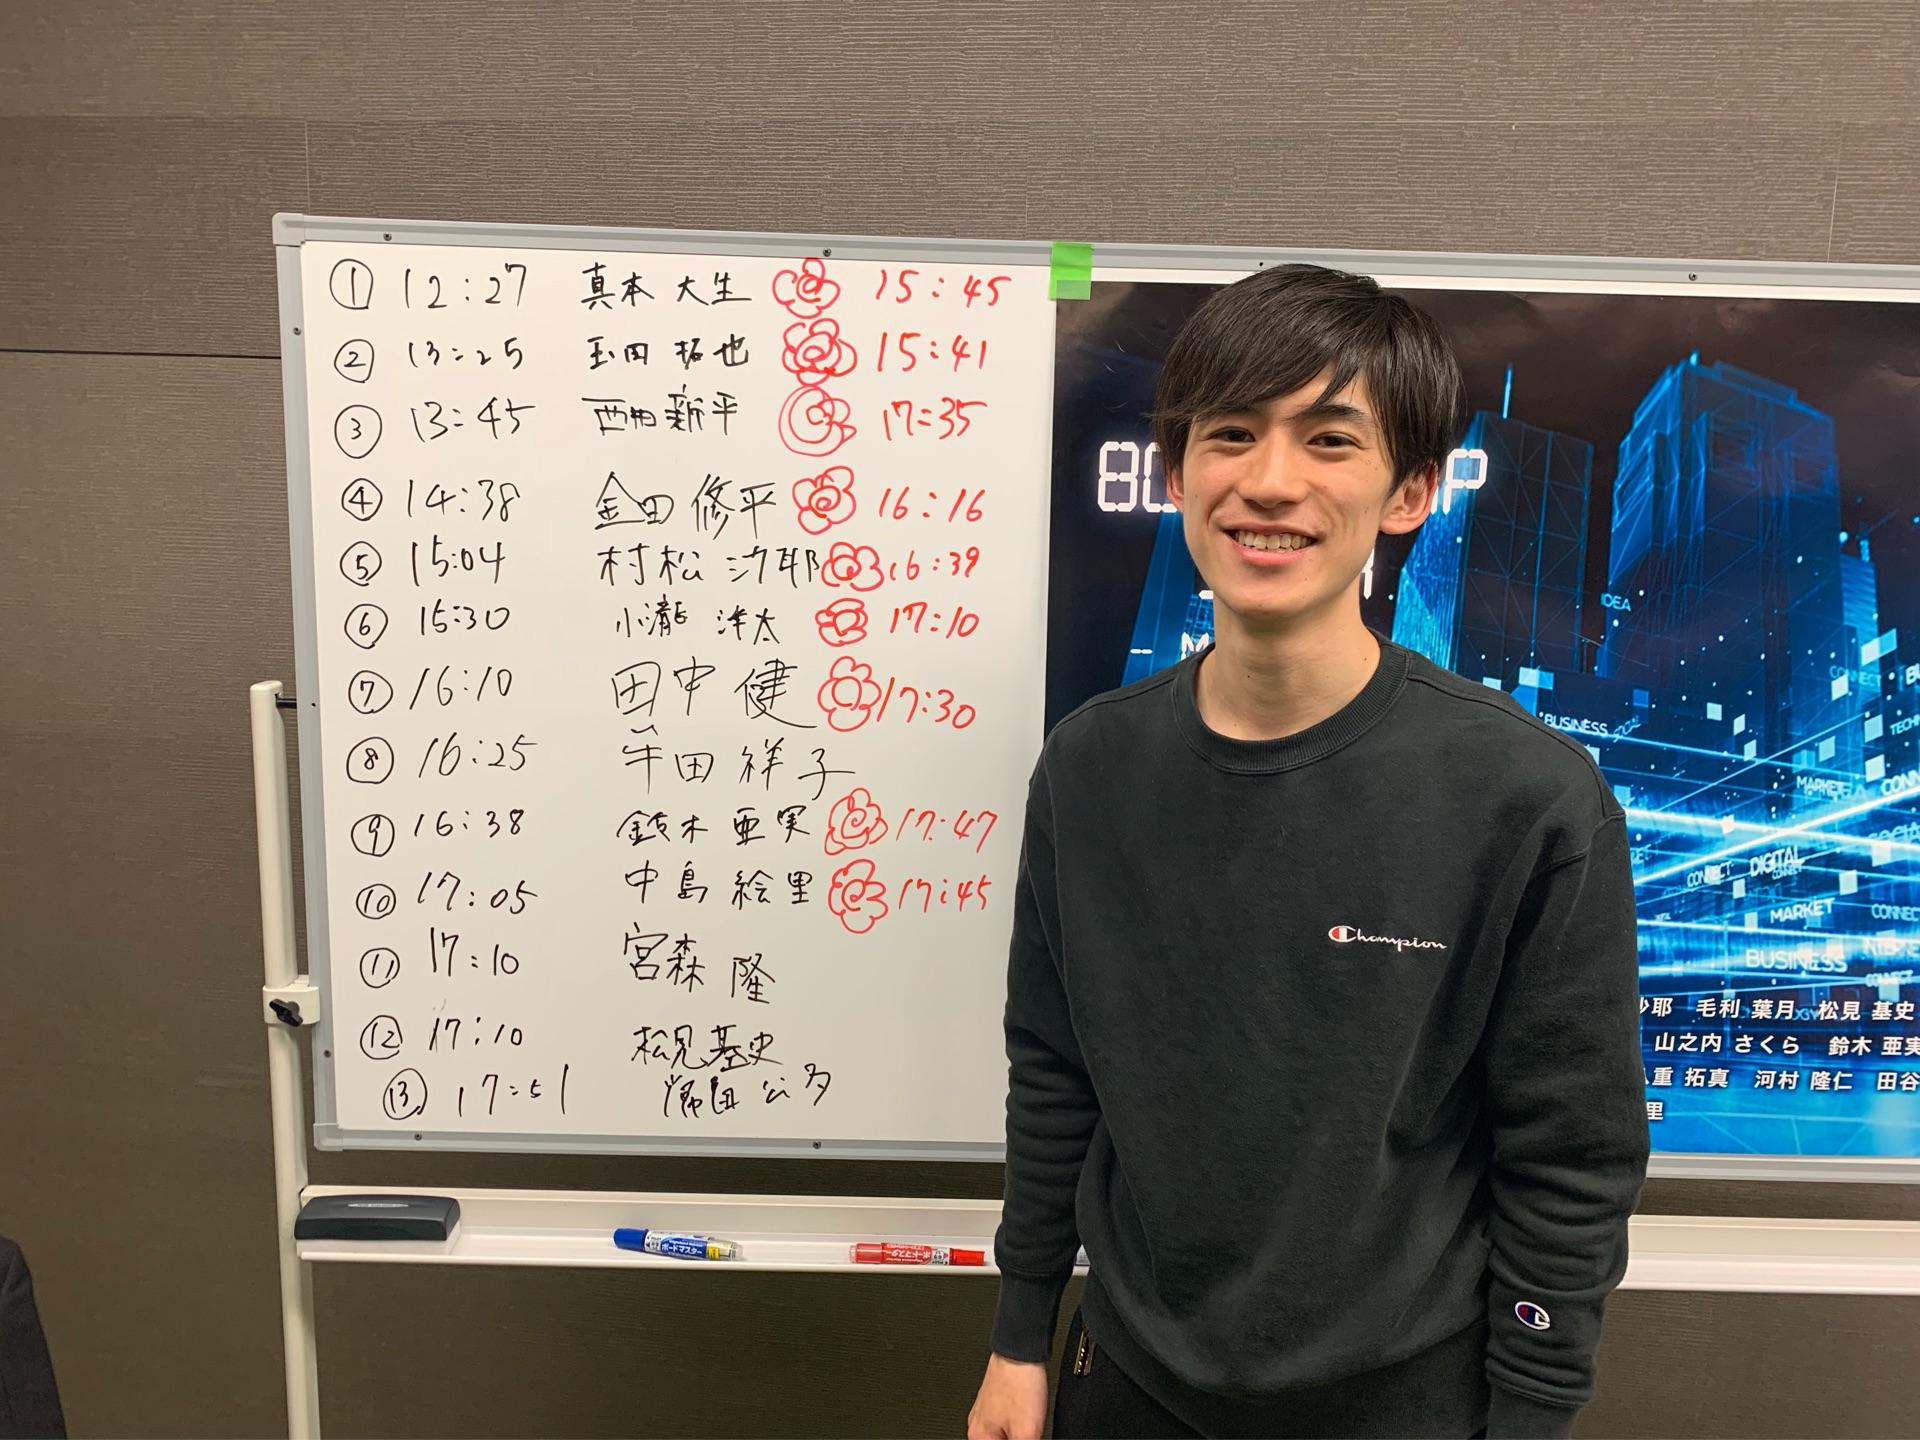 ① 12:27 真本 大生 15:45
② 13:25 玉田 拓也 15:41
③ 13:45 西畑 新平 17:35
④ 14:38 金田 修平 16:16
⑤ 15:04 村松 沙耶 16:39
⑥ 15:30 小瀧 洋太 17:10
⑦ 16:10 田中 健 17:30
⑧ 16:25 半田 祥子
⑨ 16:38 鈴木 亜実 17:47
⑩ 17:05 中島 絵里 17:45
⑪ 17:10 宮森 隆
⑫ 17:10 松見 基史
⑬ 17:51
Champion
IDEA
CONNECT
BUSINESS SOCIAL
MARKET
CONNECT DIGITAL
CONNECT
MARKET CONNECT
BUSINESS
CONNECT
沙耶 毛利 葉月 松見 基史
山之内 さくら 鈴木 亜実
重 拓真 河村 隆仁 田谷
里
ボードマスター
ボードマスター